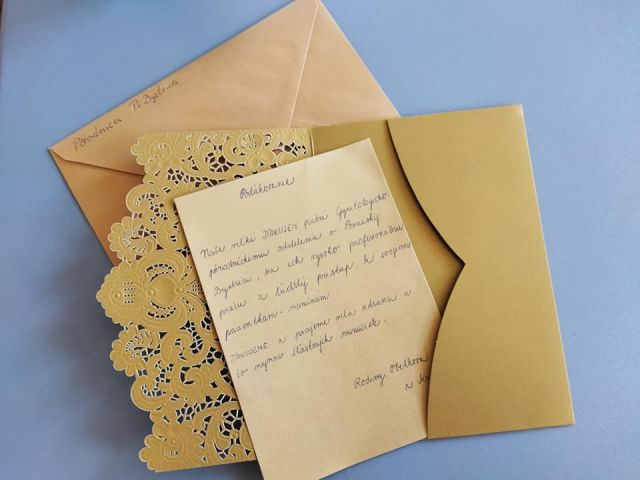 Pôrodnica P. Bystrica
Poďakovanie
Naše veľké ĎAKUJEM patrí Gynekologicko-
pôrodníckemu oddeleniu v Považskej
Bystrici, za ich vysoko profesionálnu
prácu a ľudský prístup k svojim
pacientkam - maminám.
ĎAKUJEME a prajeme veľa zdravia a
čo najviac šťastných mamičiek.
Rodiny
a